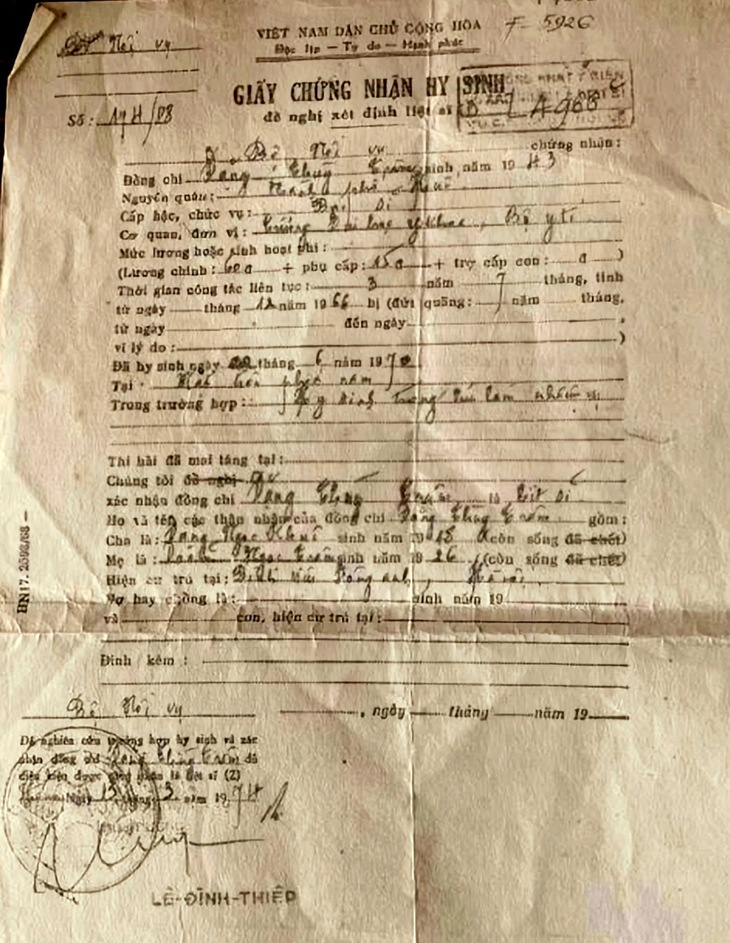 VIỆT NAM DÂN CHỦ CỘNG HÒA F- 5926
Bộ Nội vụ
Độc lập — Tự do — Hạnh phúc
GIẤY CHỨNG NHẬN HY SINH
đề nghị xét định liệt sĩ
Số:
Bộ Nội vụ chứng nhận:
Đồng chí Đặng Thuỳ Trâm sinh năm 1943
Nguyên quán: Thành phố Huế
Cấp bậc, chức vụ: Bác sĩ
Cơ quan, đơn vị: Trường Đại học y khoa, Bộ y tế
Mức lương hoặc sinh hoạt phí:
(Lương chính: 60đ + phụ cấp: + trợ cấp con: đ )
Thời gian công tác liên tục: 3 năm 7 tháng, tính
từ ngày tháng 12 năm 1966 bị (đứt quãng: năm tháng,
từ ngày đến ngày
vì lý do: )
Đã hy sinh ngày tháng 6 năm 1970
Tại: phía nam
Trong trường hợp: Hy sinh trong lúc làm nhiệm vụ
Thi hài đã mai táng tại:
Chúng tôi đề nghị
xác nhận đồng chí Đặng Thuỳ Trâm là liệt sĩ
Họ và tên các thân nhân của đồng chí Đặng Thuỳ Trâm gồm:
Cha là: Đặng Ngọc Khuê sinh năm 19 (còn sống đã chết)
Mẹ là: Doãn Ngọc Trâm sinh năm 1926 (còn sống đã chết)
Hiện cư trú tại: Đông anh, Hà nội
Vợ hay chồng là: sinh năm 19
và con, hiện cư trú tại:
Đính kèm:
Bộ Nội vụ
, ngày tháng năm 19
Đã nghiên cứu trường hợp hy sinh và xác
nhận đồng chí Đặng Thuỳ Trâm đủ
điều kiện được công nhận là liệt sĩ (2)
ngày 13 tháng 3 năm 1974
LÊ-ĐÌNH-THIỆP